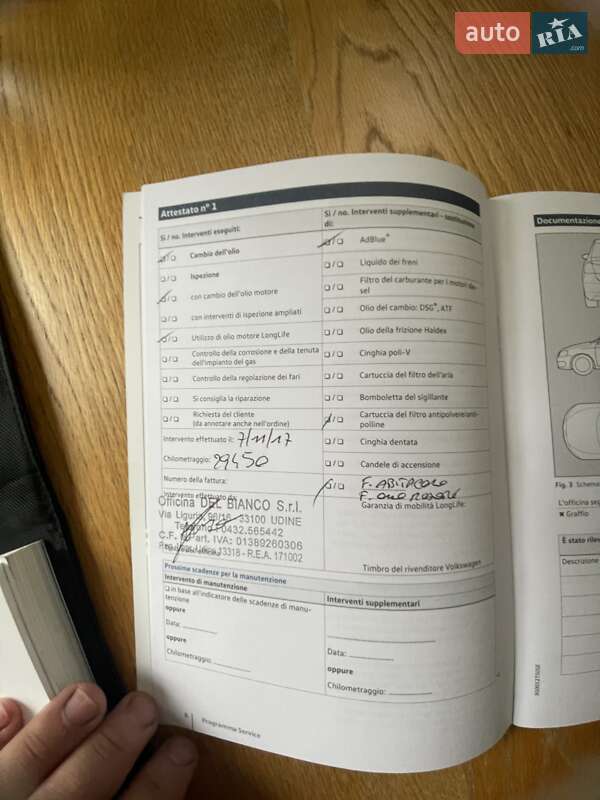 auto RIA .com
Attestato n° 1
Sì / no. Interventi eseguiti:
Cambio dell'olio
Ispezione
con cambio dell'olio motore
con interventi di ispezione ampliati
Utilizzo di olio motore LongLife
Controllo della corrosione e della tenuta
dell'impianto del gas
Controllo della regolazione dei fari
Si consiglia la riparazione
Richiesta del cliente
(da annotare anche nell'ordine)
Intervento effettuato il: 7/11/17
Chilometraggio: 29450
Numero della fattura:
Intervento effettuato da:
Officina DEL BIANCO S.r.l.
Via Liguria, 96/16 - 33100 UDINE
Telefono 0432.565442
C.F. e Part. IVA: 01389260306
13318 - R.E.A. 171002
Sì / no. Interventi supplementari - sostituzione
di:
AdBlue®
Liquido dei freni
Filtro del carburante per i motori die-
sel
Olio del cambio: DSG®, ATF
Olio della frizione Haldex
Cinghia poli-V
Cartuccia del filtro dell'aria
Bomboletta del sigillante
Cartuccia del filtro antipolvere/anti-
polline
Cinghia dentata
Candele di accensione
F. ABITACOLO
F. OLIO MOTORE
Garanzia di mobilità LongLife:
Timbro del rivenditore Volkswagen
Prossime scadenze per la manutenzione
Intervento di manutenzione
in base all'indicatore delle scadenze di manu-
tenzione
oppure
Data:
oppure
Chilometraggio:
Interventi supplementari
Data:
oppure
Chilometraggio:
Programma Service
Documentazione
Fig. 3 Schema
L'officina seg
✖ Graffio
È stato rilev
Descrizione